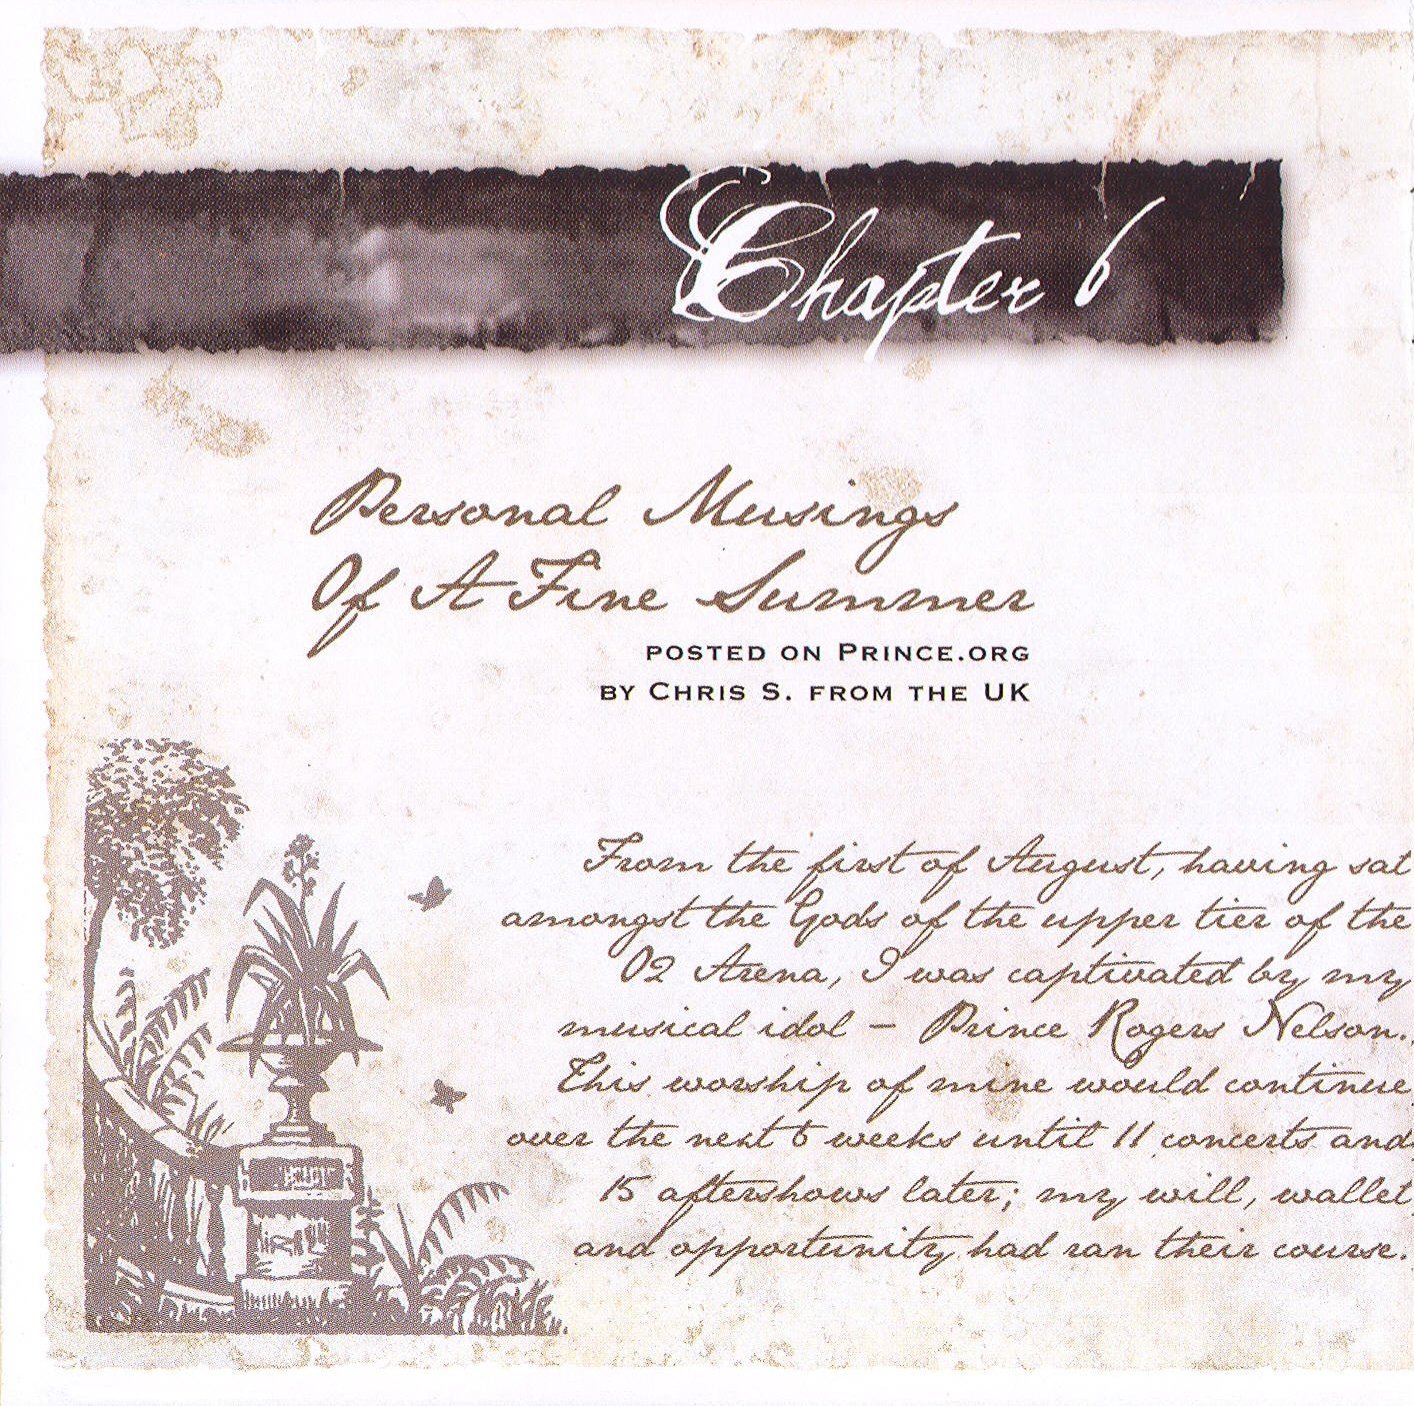 Chapter 6
Personal Musings
Of A Fine Summer
POSTED ON PRINCE.ORG
BY CHRIS S. FROM THE UK
From the first of August, having sat
amongst the Gods of the upper tier of the
O2 Arena, I was captivated by my
musical idol – Prince Rogers Nelson.
This worship of mine would continue
over the next 6 weeks until 11 concerts and
15 aftershows later; my will, wallet
and opportunity had ran their course.